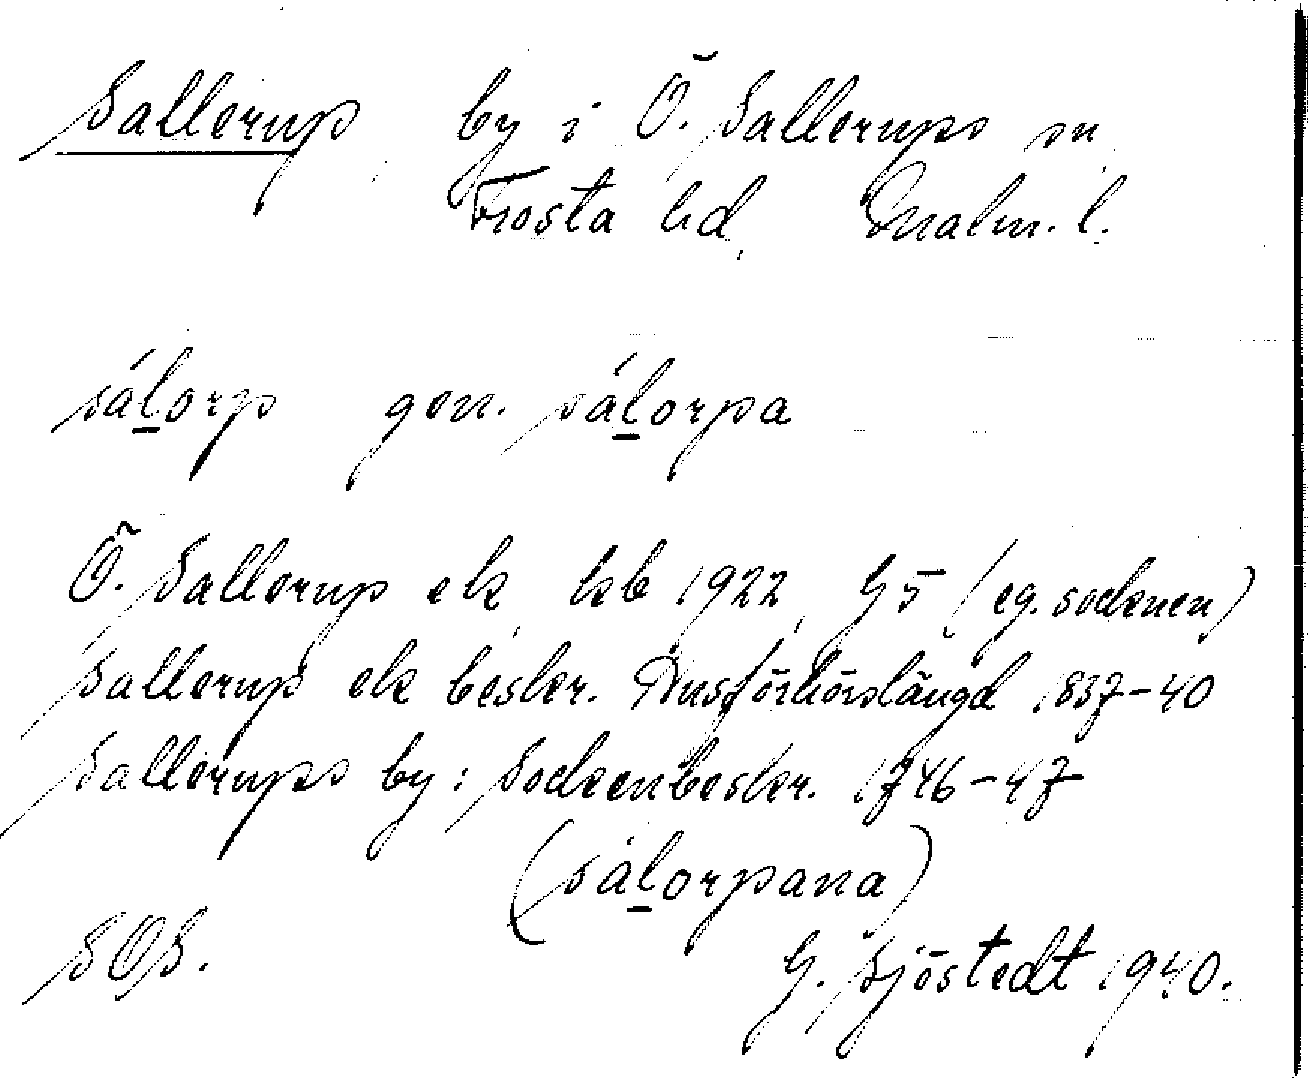 Sallerup by i Ö. Sallerups sn
Frosta hd, Malm. l.
sál̲orp gen. sál̲orpa
Ö. Sallerup ek kb 1922, G5 (eg. socknen)
Sallerup ek beskr. Husförhörslängd 1837-40
Sallerups by: Sockenbeskr. 1746-47
(sál̲orpana)
SOS.
G. Sjöstedt 1940.